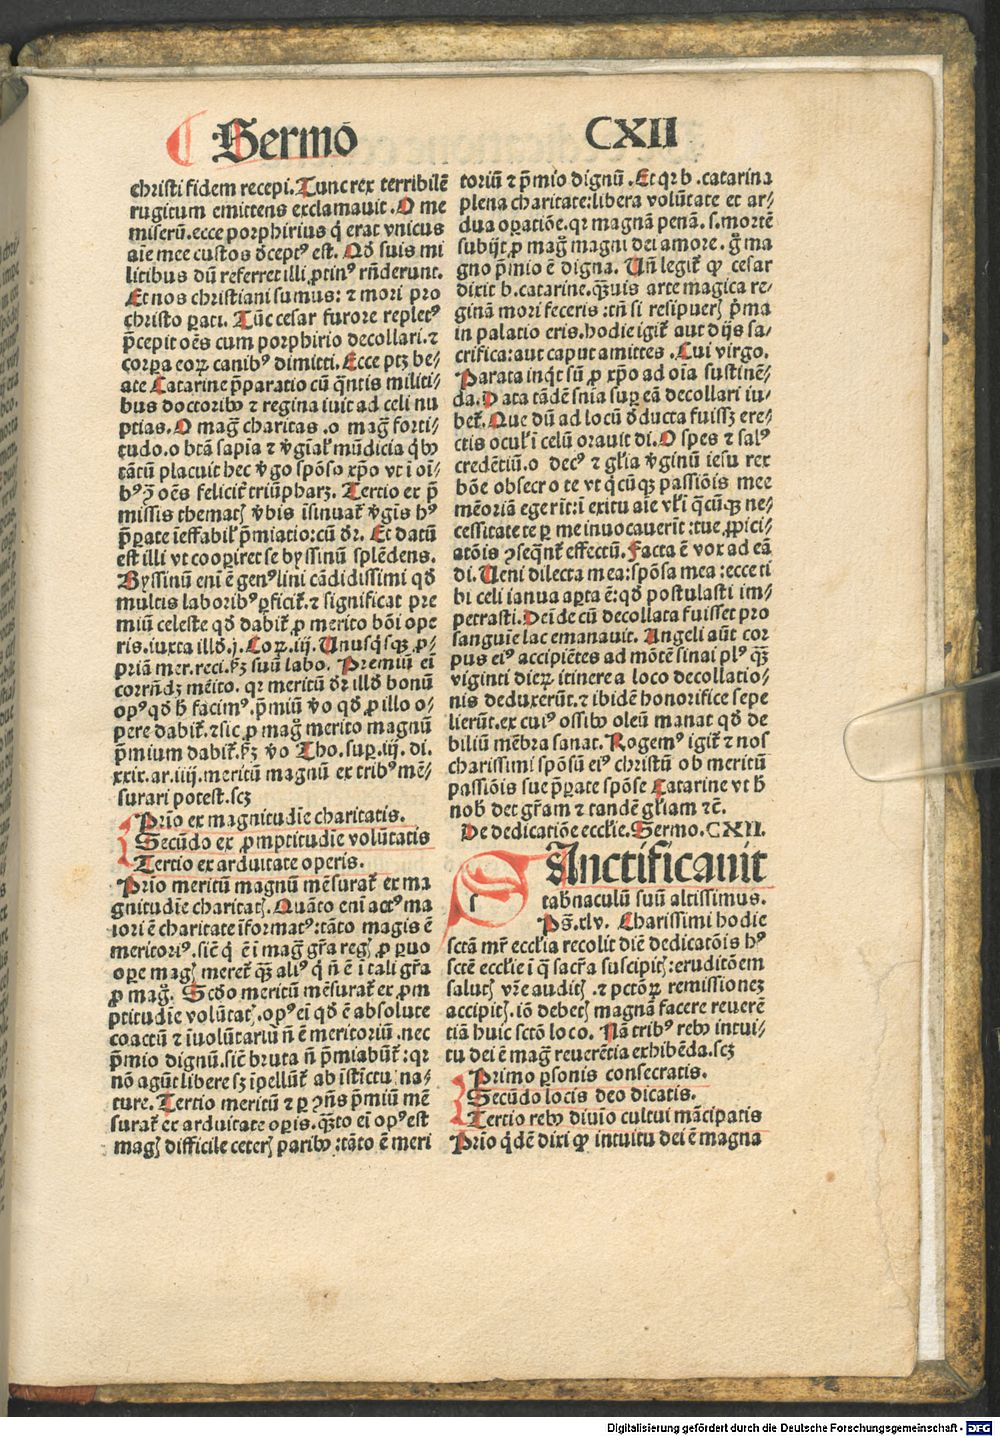 Sermō CXII
christi fidem recepi. Tunc rex terribilē
rugitum emittens exclamauit. O me
miserū. ecce porphirius q̄ erat vnicus
aīe mee custos deceptꝰ est. Qd̄ suis mi
litibus dū referret illi ꝓtinꝰ rn̄derunt.
Et nos christiani sumus: ⁊ mori pro
christo ꝑati. Tūc cesar furore repletꝰ
p̄cepit oēs cum porphirio decollari. ⁊
corꝑa eoꝝ canibꝰ dimitti. Ecce ptꝫ be-
ate Catarine p̄paratio cū q̄ntis militi-
bus doctoribꝰ ⁊ regina iuit ad celi nu
ptias. O maḡ charitas. o maḡ forti-
tudo. o btā sapīa ⁊ v̄gīalꝭ mūdicia q̄bꝰ
tātū placuit hec v̄go spōso xp̄o vt ī oī-
bꝰ ꝯ̄ oēs felicit̄ triūpharꝫ. Tertio ex p̄
missis thematꝭ v̄bis īsinuat̄ v̄gis hꝰ
p̄ꝑate īeffabilꝭ p̄miatio: cū dr̄. Et datū
est illi vt cooꝑiret se byssinū splēdens.
Byssinū enī ē genꝰ lini cādidissimi qd̄
multis laboribꝰ ꝑficit̄. ⁊ significat pre
miū celeste qd̄ dabit̄ ꝓ merito bōi ope
ris. iuxta illd̄. j. Corꝭ. iij. Unusq̄sqꝫ ꝓ-
priā mer. reci. ẜm̄ suū labo. Premiū eī
corrn̄dꝫ mēito. qr meritū dr̄ illd̄ bonū
opꝰ qd̄ h̄ facimꝰ. p̄miū v̄o qd̄ ꝓ illo o-
pere dabit̄. ⁊ sic ꝓ maḡ merito magnū
p̄mium dabit̄. ẜm̄ v̄o Tho. suꝑ. iij. di.
xxix. ar. iiij. meritū magnū ex tribꝰ mē-
surari potest. scꝫ
Prīo ex magnitudīe charitatis.
Secūdo ex ꝓmptitudīe volūtatis
Tertio ex arduitate operis.
Prīo meritū magnū mēsurat̄ ex ma
gnitudīe charitatꝭ. Quāto enī actꝰ ma
iori ē charitate īformatꝰ: tāto magis ē
meritoriꝰ. sic̄ q̄ ē ī maḡ gr̄a regꝭ ꝓ ꝑuo
oꝑe magꝭ meret̄ qꝫ aliꝰ q̄ n̄ ē ī tali gr̄a
ꝓ maḡ. Scd̄o meritū mēsurat̄ ex ꝓm
ptitudīe volūtatꝭ. opꝰ eī qd̄ ē absolute
coactū ⁊ īuolūtariū n̄ ē meritoriū. nec
p̄mio dignū. sic̄ bruta n̄ p̄miabūt̄: qr
nō agūt libere sꝫ īpellūt̄ ab īstīctu na-
ture. Tertio meritū ⁊ ꝑ ꝯn̄s p̄miū mē
surat̄ ex arduitate oꝑis. qꝫto eī opꝰ est
magꝭ difficile ceterꝭ paribꝰ: tāto ē meri
toriū ⁊ p̄mio dignū. Et qr b. catarina
plena charitate: libera volūtate et ar-
dua oꝑatiōe. qr magnā penā. s. mortē
subijt ꝓ maḡ magni dei amore. g̊ ma
gno p̄mio ē digna. Un̄ legit̄ ꝙ cesar
dixit b. catarine. qꝫuis arte magica re-
ginā mori feceris: tn̄ si resipuerꝭ p̄ma
in palatio eris. hodie igit̄ aut dijs sa-
crifica: aut caput amittes. Cui virgo.
Parata inq̄t sū ꝓ xp̄o ad oīa sustinē-
da. Data tādē snīa suꝑ eā decollari iu-
bet̄. Que dū ad locū d̄ducta fuissꝫ ere-
ctis oculꝭ ī celū orauit di. O spes ⁊ salꝰ
credētiū. o decꝰ ⁊ glīa v̄ginū iesu rex
bōe obsecro te vt q̄cūqꝫ passiōis mee
mēoriā egerīt: ī exitu aīe vlꝭ ī q̄cūqꝫ ne-
cessitate te ꝑ me inuocauerīt: tue ꝓpici-
atōis ꝯseq̄nt̄ effectū. Facta ē vox ad eā
di. Ueni dilecta mea: spōsa mea: ecce ti
bi celi ianua aꝑta ē: qd̄ postulasti im-
petrasti. Deīde cū decollata fuisset pro
sanguīe lac emanauit. Angeli aūt cor
pus eiꝰ accipiētes ad mōtē sinai plꝰ qꝫ
viginti dieꝝ itinere a loco decollatio-
nis deduxerūt. ⁊ ibidē honorifice sepe
lierūt. ex cuiꝰ ossibꝰ oleū manat qd̄ de
biliū mēbra sanat. Rogemꝰ igit̄ ⁊ nos
charissimi spōsū eiꝰ christū ob meritū
passiōis sue p̄ꝑate spōse Catarine vt h̄
nob̄ det gr̄am ⁊ tandē glīam ⁊c̄.
De dedicatiōe eccl̄ie. Sermo. CXII.
SAnctificauit
tabnaculū suū altissimus.
Ps̄. xlv. Charissimi hodie
sctā mr̄ eccl̄ia recolit diē dedicatōis hꝰ
sctē eccl̄ie ī q̄ sacr̄a suscipitꝭ: eruditōem
salutꝭ vr̄e auditꝭ. ⁊ pctōꝝ remissionez
accipitꝭ. iō debetꝭ magnā facere reuerē
tiā huic sctō loco. Nā tribꝰ rebꝰ intui-
tu dei ē maḡ reuerētia exhibēda. scꝫ
Primo ꝑsonis consecratis.
Secūdo locis deo dicatis.
Tertio rebꝰ diuīo cultui mācipatis
Prīo q̄dē dixi ꝙ intuitu dei ē magna
Digitalisierung gefördert durch die Deutsche Forschungsgemeinschaft - DFG